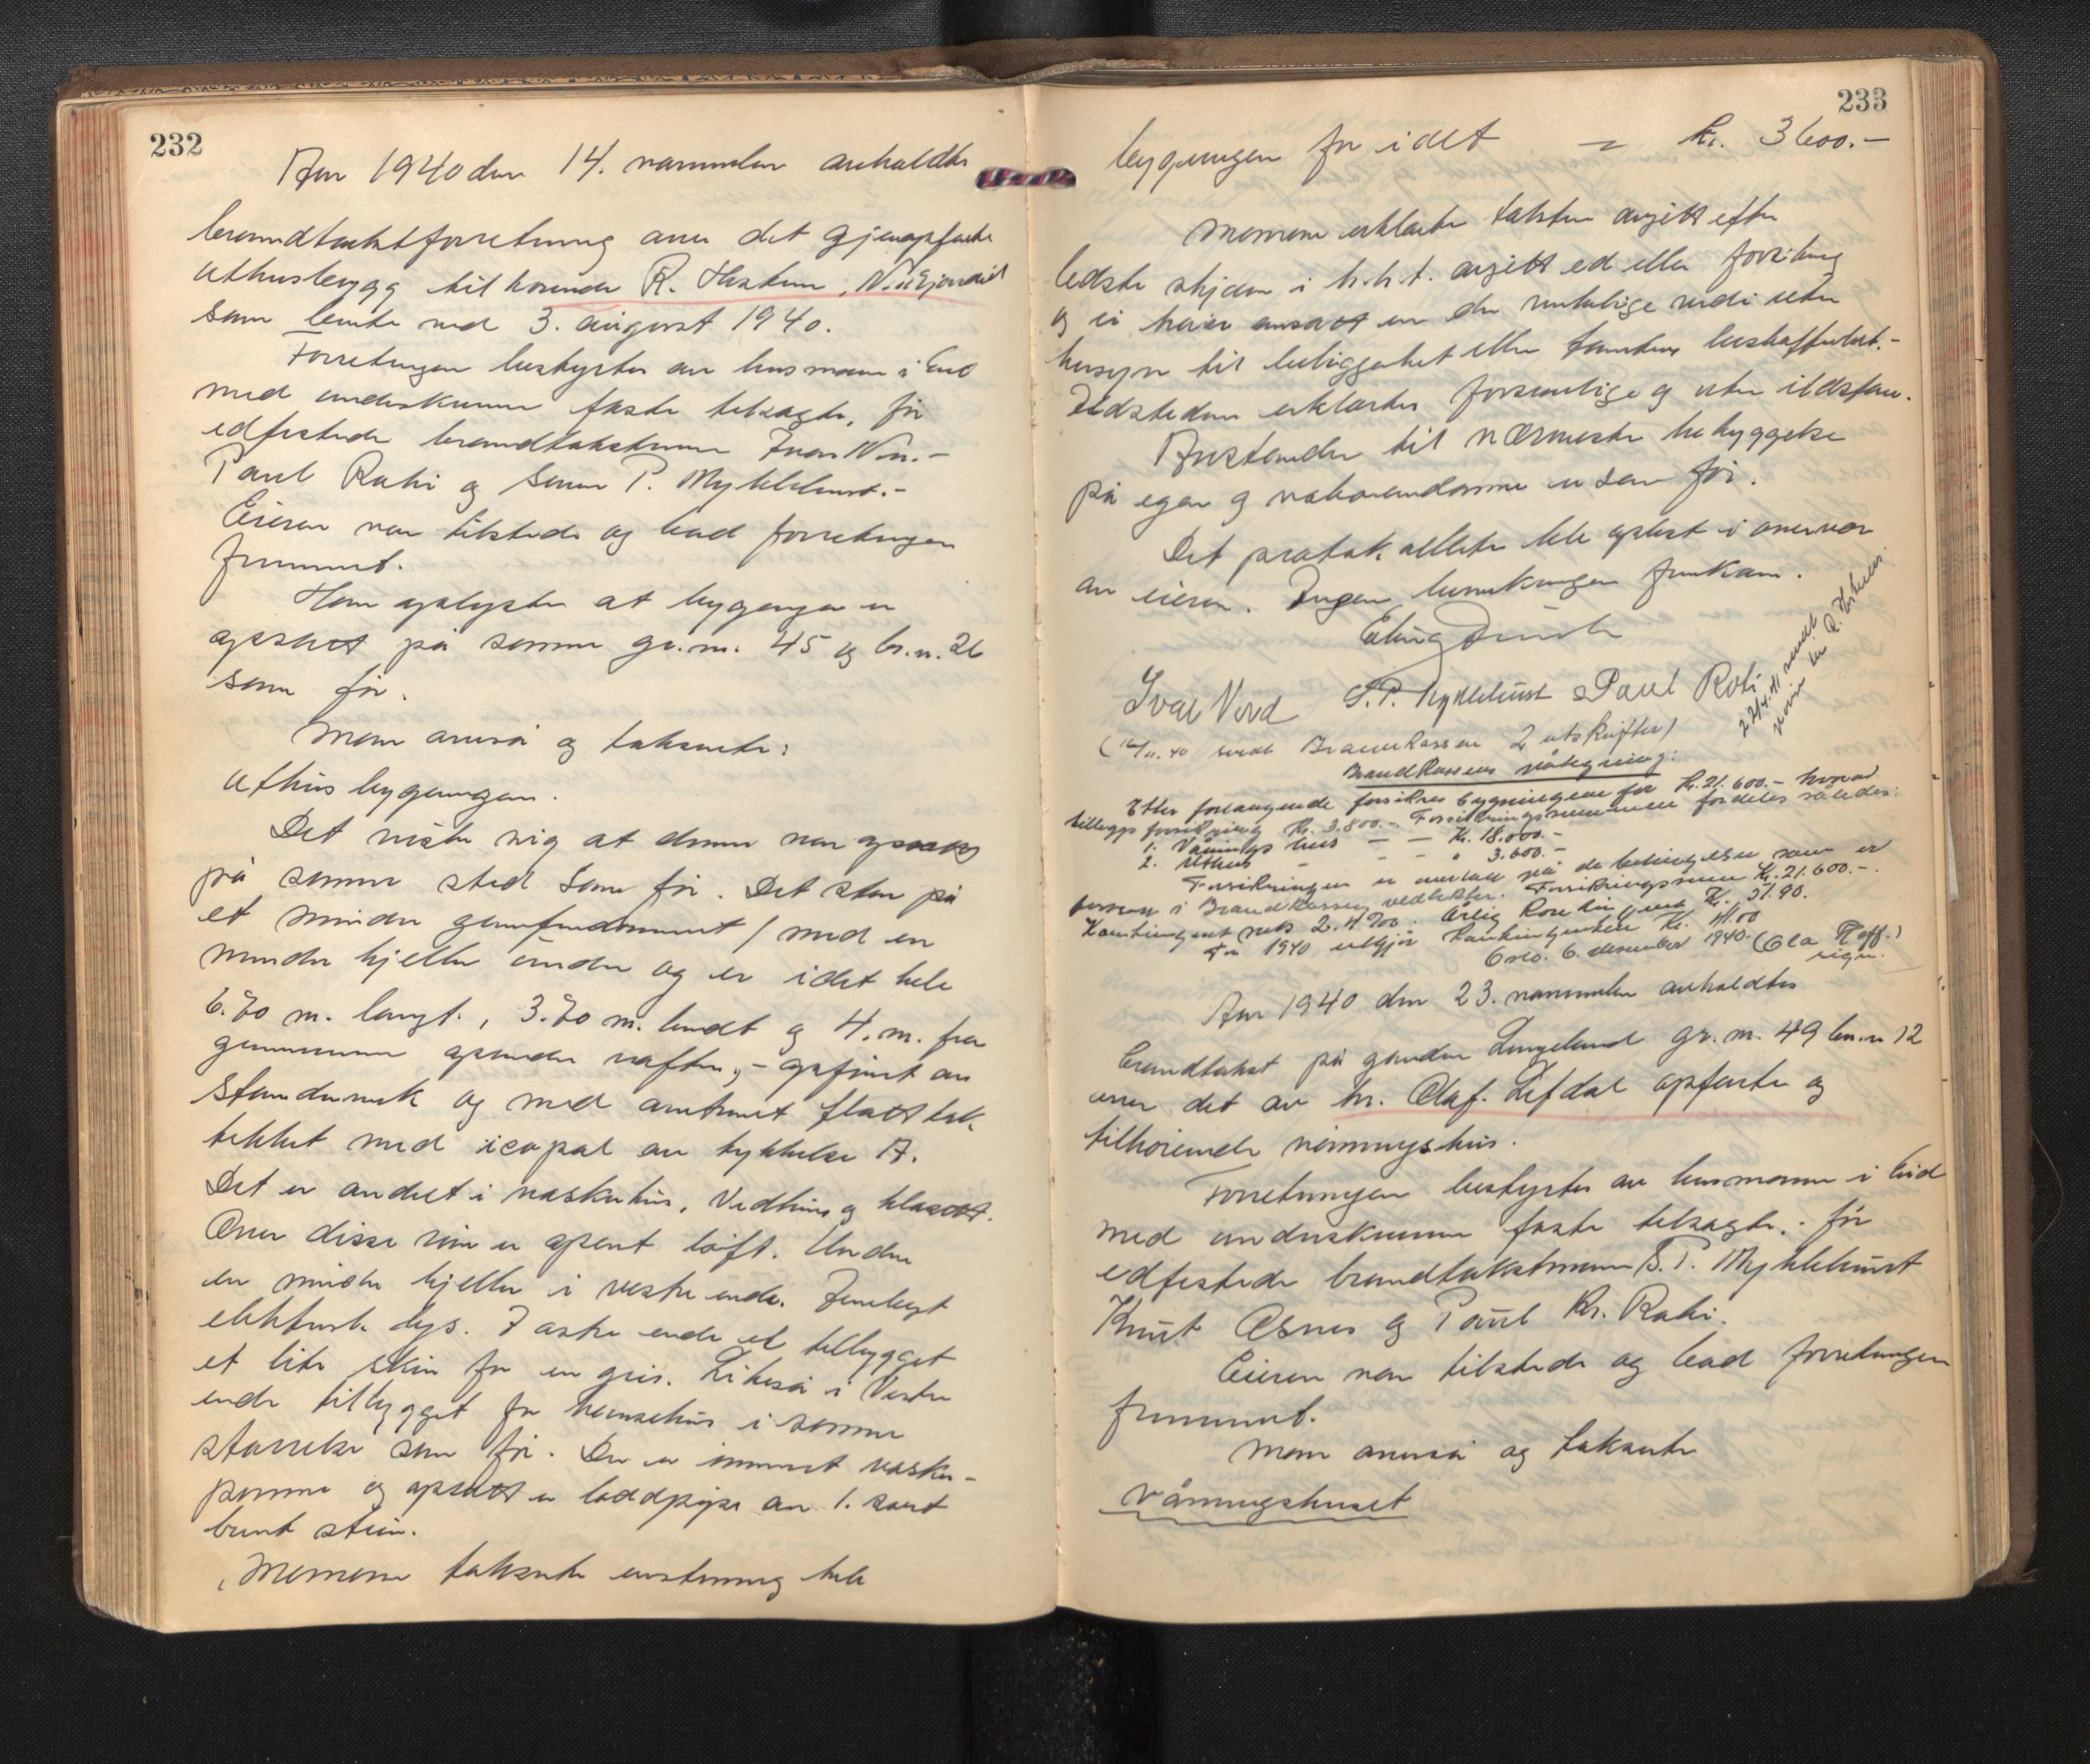 232
Aar 1940 den 14. november avholdtes
branntakstforretning over det gjenopførte
uthusbygg tilhørende R. Hestenes, Nordfjordeid
som brente ned 3. august 1940.
Forretningen bestyrtes av lensmann i Eid
med underskrevne faste tilsagte, før
edfestede brandtakstmenn Ivar Nor.-
Paul Roti og Søren P. Myklebust.-
Eieren var tilstede og bad forretningen
fremmet.
Han oplyste at bygningen er
opsatt på samme gr.nr. 45 og br.n. 26
som før.
Man anviså og taksert:
Uthusbygningen.
Det viste sig at denne var opsatt
på samme sted som før. Det står på
et mindre grunnfundament / med en
mindre kjeller under og er i det hele
6.70 m. langt, 3.70 m. bredt og 4. m. fra
grunnmuren øvende raften,- opført av
standverk og med avtrunt flatt tak
tekket med icopal av tykkelse A.
Det er avdelt i vaskehus, Vedhus og klosett.
Over disse rum er åpent loft. Under
en mindre kjeller i vestre ende. Innlagt
elektrisk lys. I østre ende et tilbygget
et lite skur for en gris. Likeså i Vestre
ende tilbygget for hønsehus i samme
størrelse som før. Der er innmurt vaske-
panne og opsatt en loddpipe av 1. sort
brent stein.
Mennene takserte enstemmig hele
233
bygningen for i det = kr. 3600.-
Mennene erklærte taksten avgitt efter
bedste skjøn i h.h.t. avgitt ed eller forsikring
og vi har ansatt en den virkelige verdi uten
hensyn til beliggenhet eller tomtens beskaffenhet.-
Ildstedene erklærtes forsvarlige og uten ildsfare.
Avstander til nærmeste bebyggelse
på egen og naboeiendomme er som før.
Det protokollerte ble oplest i overvær
av eieren. Ingen bemerkninger fremkom.
Ivar Nord S. P. Myklebust Paul Roti
(16/11.40 sendt Brannkassen 2 utskrifter)
22/4.41 sendt
Brandkassens påtegning:
Etter forlangende forsikres bygningene for Kr. 21.600.- hvorav
tilleggsforsikring Kr. 3.800.-. Forsikringssummen fordeles således:
1. Vånings hus — — Kr. 18.000.-
2. Uthus - - - " 3.600.-
Forsikringen er overtatt på de betingelser som er
foresatt i Brandkassens vedtekter. Forsikringssum Kr. 21.600.-.
Kontingent Årlig kontingent Kr. 51.90.
For 1940 utgjør kontingenten Kr. 41.00
Oslo. 6. desember 1940. (Ola Hoff.)
sign.
Aar 1940 den 23. november avholdtes
brandtakst på garden Langeland gr. nr. 49 br.nr 12
over det av hr. Olaf. Lefdal opførte og
tilhørende våningshus.
Forretningen bestyrtes av lensmann i Eid
med underskrevne faste tilsagte, før
edfestede brandtakstmenn S. P. Myklebust
Knut Osnes og Paul Kr. Roti.
Eieren var tilstede og bad forretningen
fremmet.
Man anviså og takserte
Våningshuset